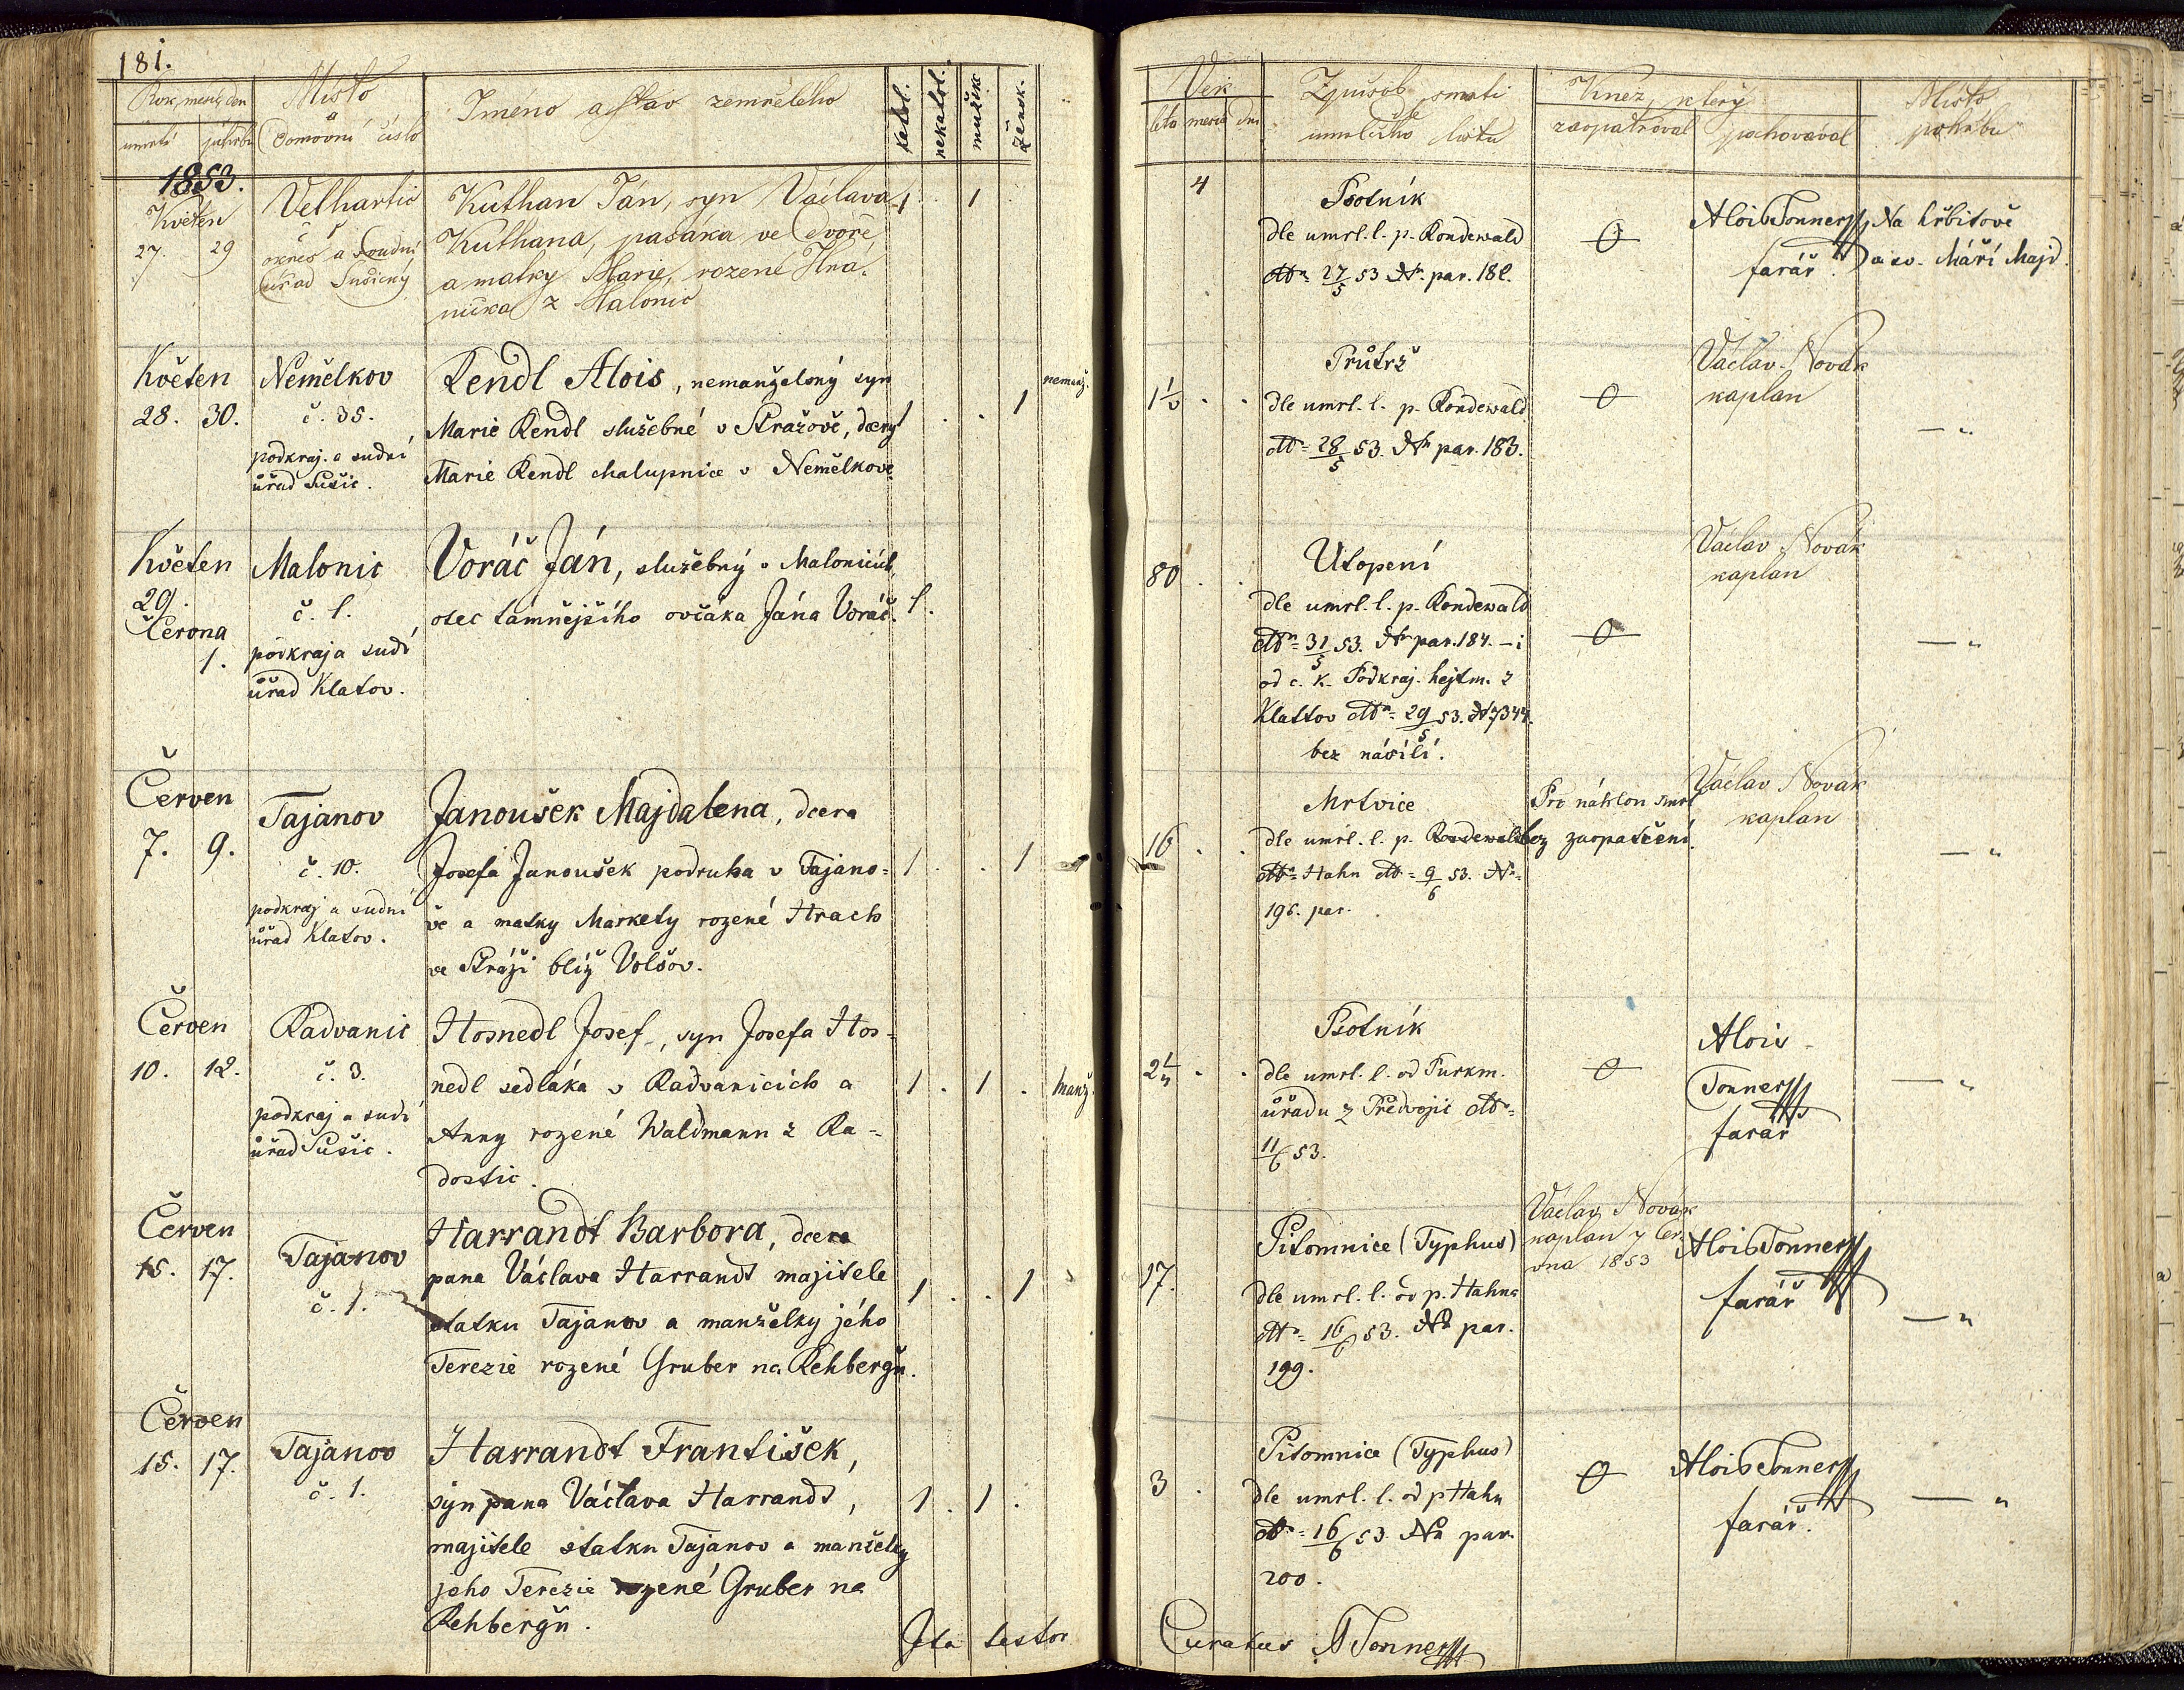 181.
Rok, měsíc, den
úmrtí pohřbu
Místo
a
Domovní číslo
Jméno a stav zemřelého
katol.
nekatol.
mužsk.
žensk.
1853.
Květen
27. 29
Velhartic
č.
okres a soudní
úřad Sušický
Kuthan Ján, syn Václava
Kuthana, pasáka ve dvoře
a matky Marie, rozené
z Malonic
1 . 1
Květen
28. 30.
Nemělkov
č. 35.
podkraj. a sudní
úřad Sušic.
Rendl Alois, nemanželský syn
Marie Rendl služebné v Stražově, dcery
Marie Rendl chalupnice v Nemělkově.
1 . . 1
nemanž.
Květen
29.
Června
1.
Malonic
č. 1.
podkraj a sudí
úřad Klatov.
Voráč Ján, služebný v Malonicích,
otec tamnějšího ovčáka Jána Voráč.
1.
Červen
7. 9.
Tajanov
č. 10.
podkraj a sudní
úřad Klatov.
Janoušek Majdalena, dcera
Josefa Janoušek podruha v Tajano=
vě a matky Markety rozené Hrach
ve Stráži blíž Volšov.
1 . . 1
Červen
10. 12.
Radvanic
č. 3.
podkraj a sudí
úřad Sušic.
Hosnedl Josef, syn Josefa Hos=
nedl sedláka v Radvanicích a
Anny rozené Waldmann z Ra=
dostic.
1 . 1 .
manž.
Červen
15. 17.
Tajanov
č. 1.
Harrandt Barbora, dcera
pana Václava Harrandt majitele
statku Tajanov a manželky jého
Terezie rozené Gruber na Rehbergu.
1 . . 1
Červen
15. 17.
Tajanov
č. 1.
Harrandt František,
syn pana Václava Harrandt,
majitele statku Tajanov a manželky
jeho Terezie rozené Gruber na
Rehbergu.
1 . 1 .
Ita testor
Věk
léta měsíc dní
Způsob smrti
dle
umrlčího listu
Kněz, který
zaopatřoval pochovával
Místo
pohřbu
4
Psotník
dle umrl. l. p. Rondewald
dto 27/5 53 N. par. 182.
0
Alois Tonner
farář.
Na hřbitově
u sv. Máří Majd.
1½ . .
Průtrž
dle umrl. l. p. Rondewald
dto 28/5 53. N par. 183.
0
Václav Novák
kaplan
— „
80 . .
Utopení
dle umrl. l. p. Rondewald
dto 31/5 53. N par. 184. – i
od c. k. Podkraj. hejtm. z
Klattov dto 29/5 53. N 7344.
bez násilí.
0
Václav Novák
kaplan
— „
16 . .
Mrtvice
dle umrl. l. p. Rondewald
dto Hahn dto 9/6 53. N=
196. par.
Pro náhlou smrt
bez zaopatření.
Václav Novák
kaplan
— „
2½ . .
Psotník
dle umrl. l. od Purkm.
úřadu z Předvojic dto=
11/6 53.
0
Alois
Tonner
farář
— „
17.
Pitomnice (Typhus)
dle umrl. l. od p. Hahna
dto= 16/6 53. N par.
199.
Václav Novák
kaplan 7 Čer.
vna 1853
Alois Tonner
farář
— „
3 .
Pitomnice (Typhus)
dle umrl. l. od p Hahn
dto= 16/6 53 N par.
200.
0
Alois Tonner
farář.
— „
Curatus A Tonner